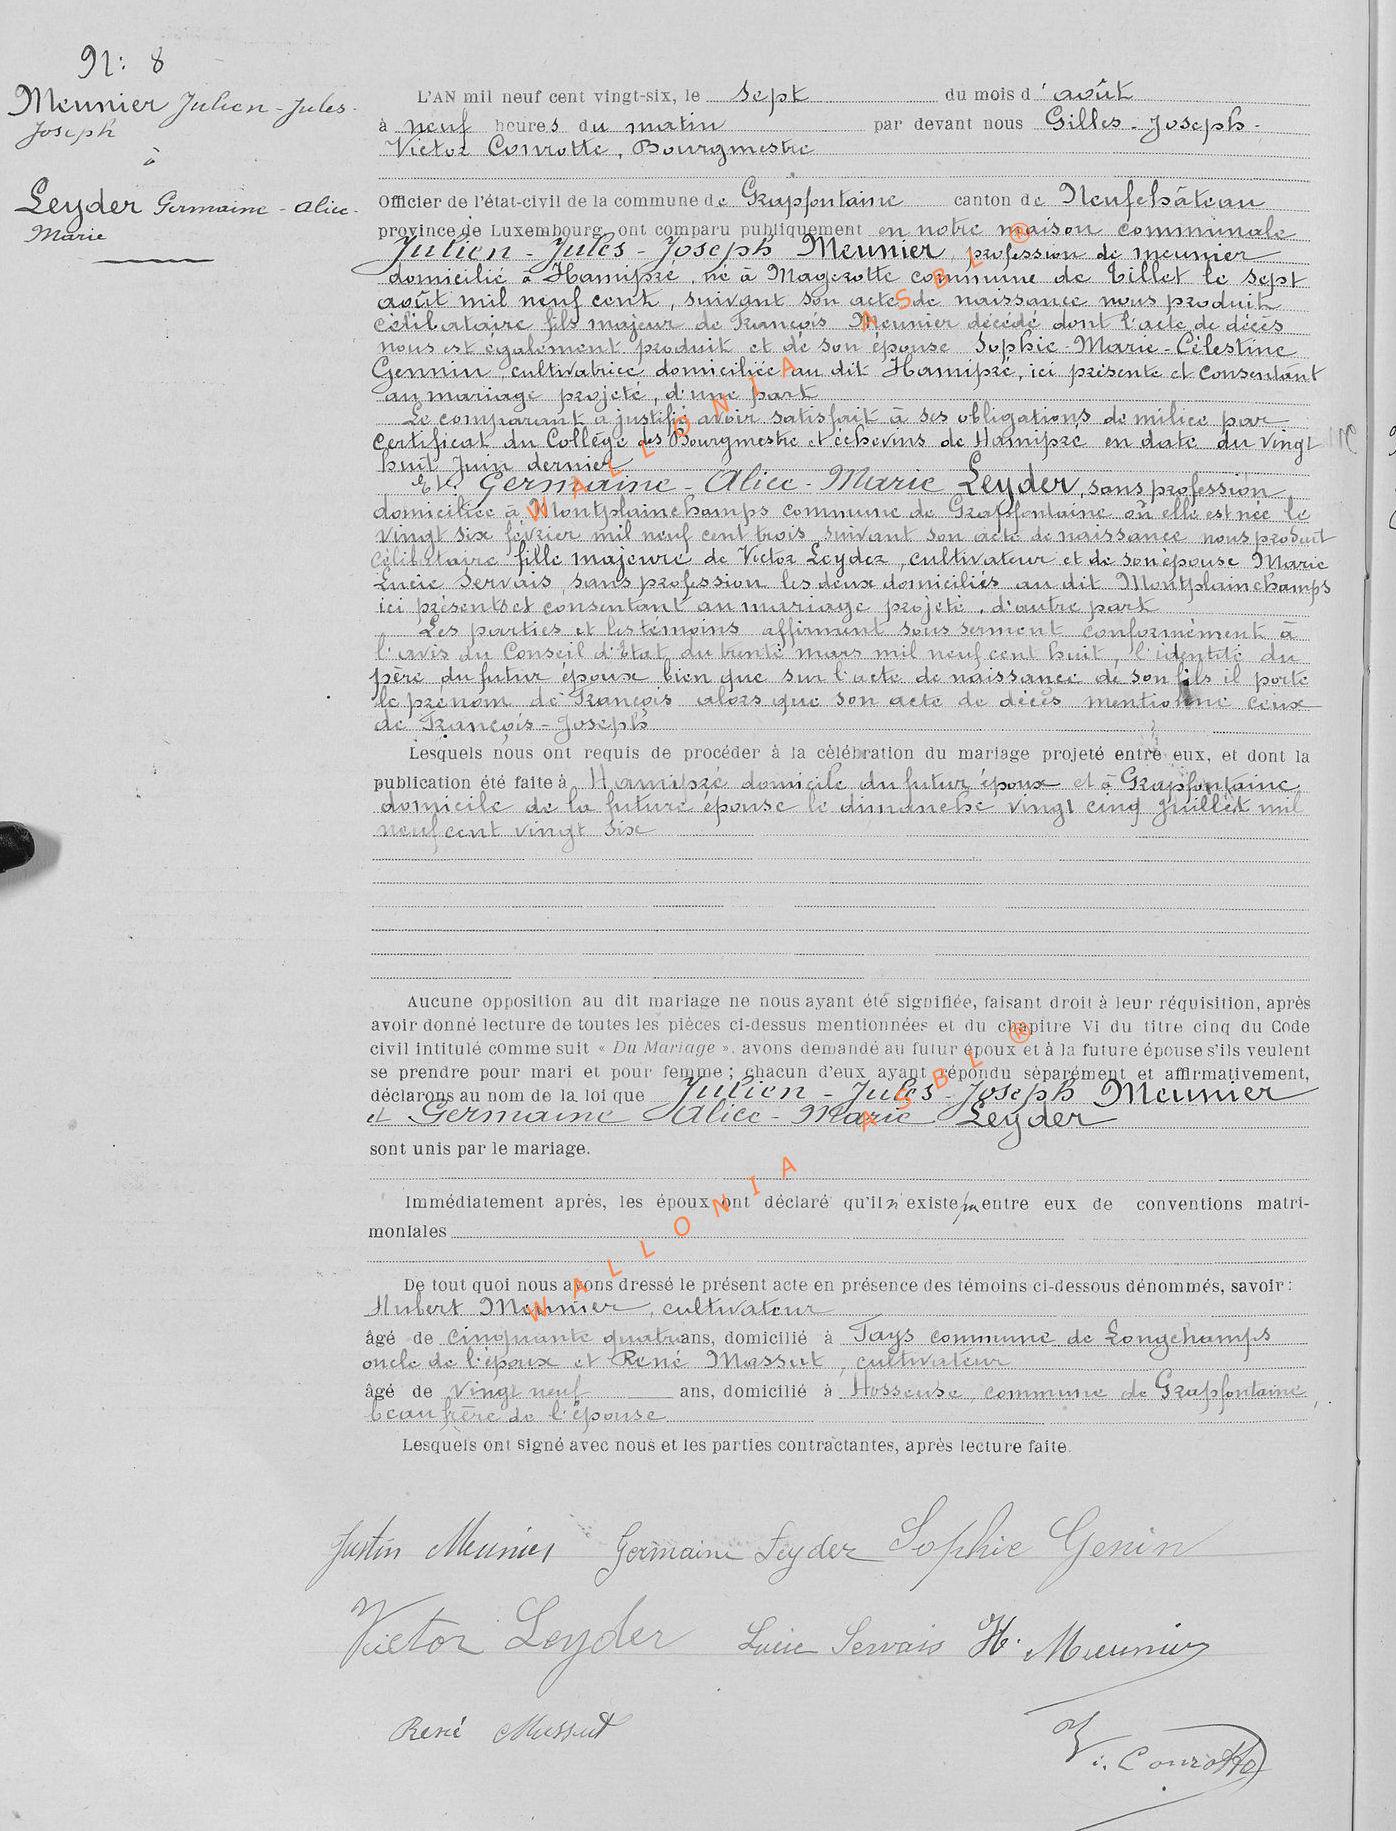 N: 8
Meunier Julien-Jules-
Joseph
à
Leyder Germaine-Alice-
Marie
L'AN mil neuf cent vingt-six, le sept du mois d'août
à neuf heures du matin par devant nous Gilles-Joseph-
Victor Conrotte, Bourgmestre
Officier de l'état-civil de la commune de Grapfontaine canton de Neufchâteau
province de Luxembourg ont comparu publiquement en notre maison communale
Julien-Jules-Joseph Meunier, profession de meunier
domicilié à Hamipré, né à Magerotte commune de Tillet le sept
août mil neuf cent, suivant son acte de naissance nous produit
célibataire fils majeur de François Meunier décédé dont l'acte de décès
nous est également produit et de son épouse Sophie-Marie-Célestine
Gennin, cultivatrice domiciliée au dit Hamipré, ici présente et consentant
au mariage projeté, d'une part
Le comparant a justifié avoir satisfait à ses obligations de milice par
certificat du Collège des Bourgmestre et échevins de Hamipré en date du vingt
huit Juin dernier
Et Germaine-Alice-Marie Leyder, sans profession
domiciliée à Montplainchamps commune de Grapfontaine où elle est née le
vingt six février mil neuf cent trois suivant son acte de naissance nous produit
célibataire fille majeure de Victor Leyder, cultivateur et de son épouse Marie
Lucie Servais, sans profession les deux domiciliés au dit Montplainchamps
ici présents et consentant au mariage projeté, d'autre part
Les parties et les témoins affirment sous serment conformément à
l'avis du Conseil d'Etat du trente mars mil neuf cent huit, l'identité du
père du futur époux bien que sur l'acte de naissance de son fils il porte
le prénom de François alors que son acte de décès mentionne ceux
de François-Joseph
Lesquels nous ont requis de procéder à la célébration du mariage projeté entre eux, et dont la
publication été faite à Hamipré domicile du futur époux et à Grapfontaine
domicile de la future épouse le dimanche vingt cinq juillet mil
neuf cent vingt six
Aucune opposition au dit mariage ne nous ayant été signifiée, faisant droit à leur réquisition, après
avoir donné lecture de toutes les pièces ci-dessus mentionnées et du chapitre VI du titre cinq du Code
civil intitulé comme suit « Du Mariage », avons demandé au futur époux et à la future épouse s'ils veulent
se prendre pour mari et pour femme ; chacun d'eux ayant répondu séparément et affirmativement,
déclarons au nom de la loi que Julien-Jules-Joseph Meunier
et Germaine Alice-Marie Leyder
sont unis par le mariage.
Immédiatement après, les époux ont déclaré qu'il n'existe pas entre eux de conventions matri-
moniales
De tout quoi nous avons dressé le présent acte en présence des témoins ci-dessous dénommés, savoir :
Hubert Meunier, cultivateur
âgé de cinquante quatre ans, domicilié à Tays commune de Longchamps
oncle de l'époux et René Massut, cultivateur
âgé de vingt neuf ans, domicilié à Hosseuse, commune de Grapfontaine,
beau frère de l'épouse
Lesquels ont signé avec nous et les parties contractantes, après lecture faite.
Justin Meunier Germaine Leyder Sophie Genin
Victor Leyder Lucie Servais H. Meunier
René Massut
V. Conrotte
WALLONIA ASBL ®
WALLONIA ASBL ®